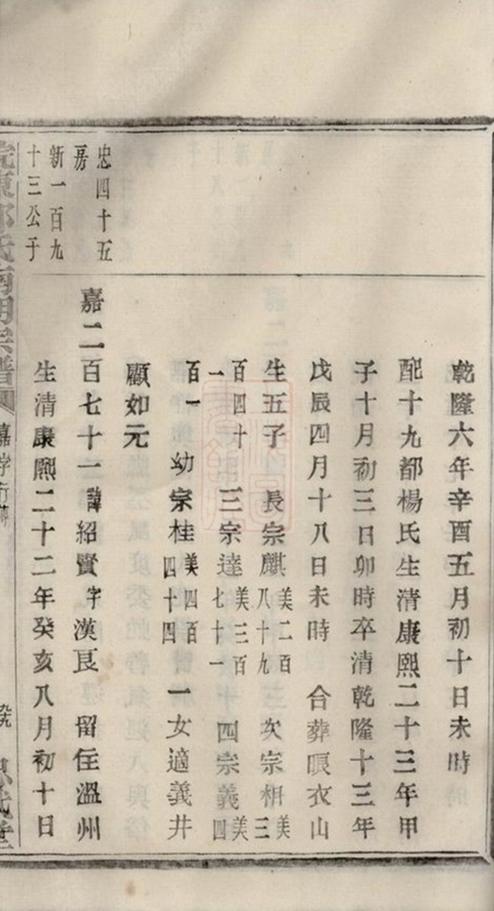 乾隆六年辛酉五月初十日未時
配十九都楊氏生清康熙二十三年甲
子十月初三日卯時卒清乾隆十三年
戊辰四月十八日未時 合葬眼衣山
生五子 長宗麒美二百八十九 次宗相美三
百四十一 三宗達美三百七十一 四宗義美四
百一 幼宗桂美四百四十四 一女適義井
顧如元
忠四十五
房
新一百九
十三公子
嘉二百七十一諱紹賢字漢良 留住溫州
生清康熙二十二年癸亥八月初十日
嘉字行